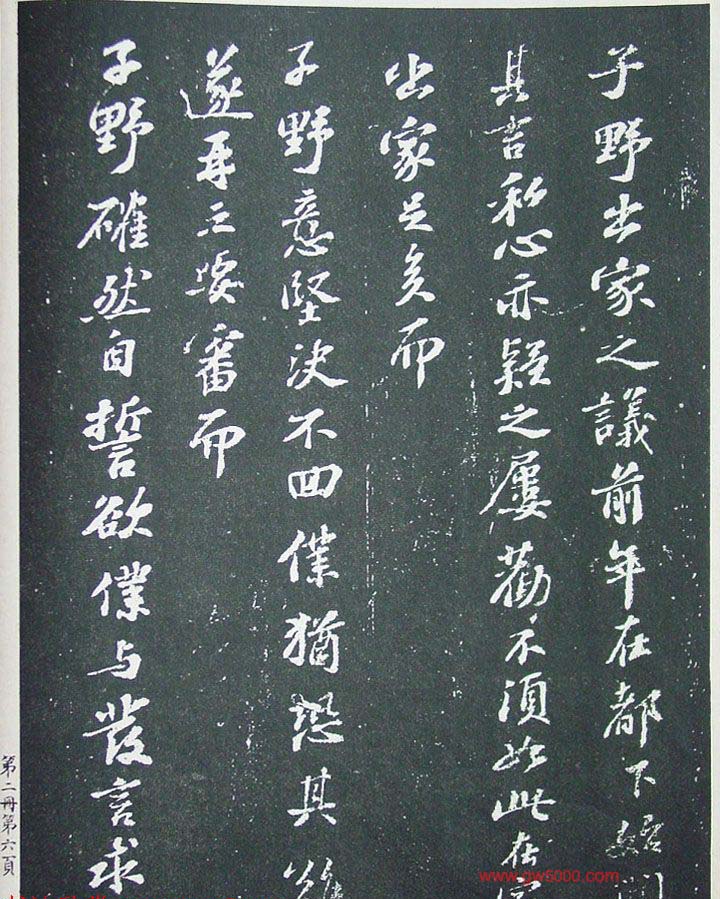 子野出家之議前年在都下始聞
其言私心亦疑之屢勸不須如此在家
出家足矣而
子野意堅決不回僕猶恐其難
遂再三要審而
子野確然自誓欲僕與發言求
第二冊第六頁
www.gw5000.com